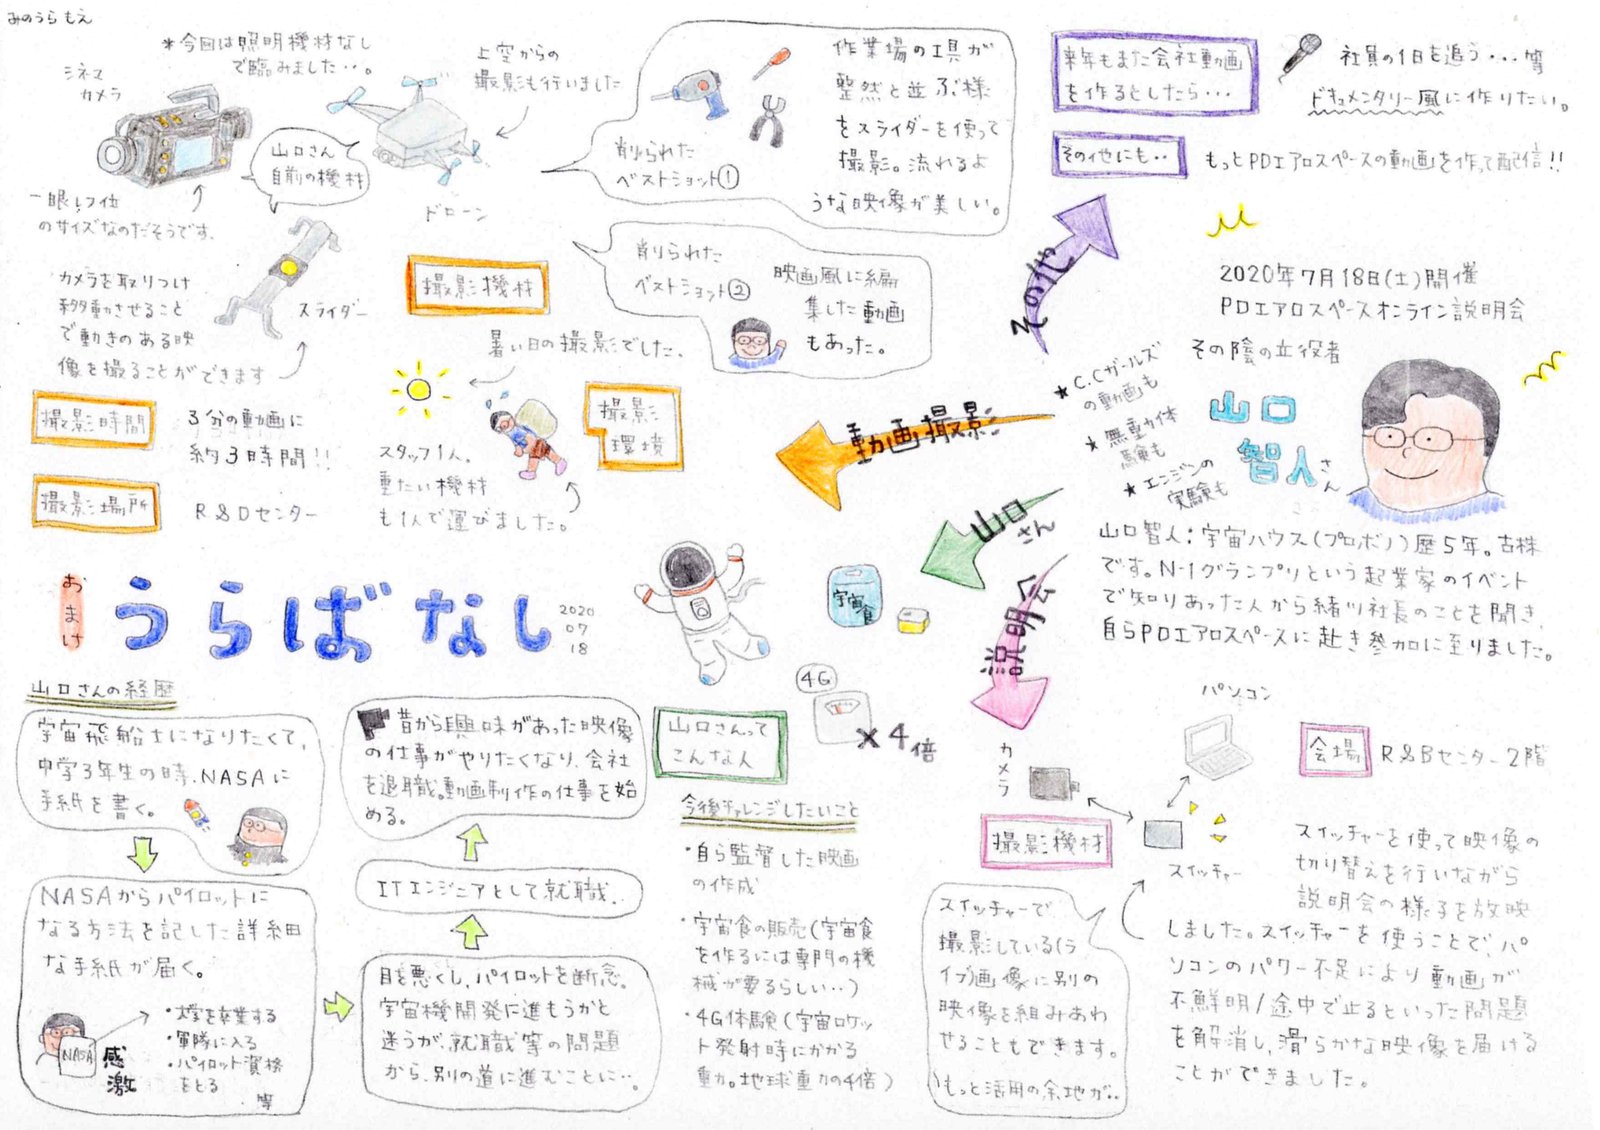 みのうら もえ
*今回は照明機材なし
で臨みました…。
シネマ
カメラ
一眼レフ位
のサイズなのだそうです。
山口さん
自前の機材
上空からの
撮影も行いました
ドローン
カメラを取りつけ
移動させること
で動きのある映
像を撮ることができます
スライダー
撮影機材
削られた
ベストショット①
作業場の工具が
整然と並ぶ様
をスライダーを使って
撮影。流れるよ
うな映像が美しい。
削られた
ベストショット②
映画風に編
集した動画
もあった。
撮影時間
3分の動画に
約3時間!!
撮影場所
R&Dセンター
暑い日の撮影でした。
撮影
環境
スタッフ1人。
重たい機材
も1人で運びました。
動画撮影
その他
来年もまた会社動画
を作るとしたら…
社員の1日を追う・・・等
ドキュメンタリー風に作りたい。
その他にも・・
もっとPDエアロスペースの動画を作って配信!!
2020年7月18日(土)開催
PDエアロスペースオンライン説明会
その陰の立役者
山口
智人さん
★C.Cガールズ
の動画も
★無重力体
験も
★エンジンの
実験も
山口智人:宇宙ハウス(プロボノ)歴5年。古株
です。N-1グランプリという起業家のイベント
で知りあった人から緒川社長のことを聞き、
自らPDエアロスペースに赴き参加に至りました。
おまけ
うらばなし
2020
07
18
山口さん
宇宙食
説明会
山口さんの経歴
宇宙飛船士になりたくて、
中学3年生の時、NASAに
手紙を書く。
NASAからパイロットに
なる方法を記した詳細
な手紙が届く。
NASA
感激
・大学を卒業する
・軍隊に入る
・パイロット資格
をとる
等
目を悪くし、パイロットを断念。
宇宙機開発に進もうかと
迷うが、就職等の問題
から、別の道に進むことに・・。
ITエンジニアとして就職。
昔から興味があった映像
の仕事がやりたくなり、会社
を退職。動画制作の仕事を始
める。
山口さんって
こんな人
4G
×4倍
今後チャレンジしたいこと
・自ら監督した映画
の作成
・宇宙食の販売(宇宙食
を作るには専門の機
械が要るらしい・・)
・4G体験(宇宙ロケッ
ト発射時にかかる
重力。地球重力の4倍)
パソコン
カメラ
スイッチャー
撮影機材
会場
R&Bセンター2階
スイッチャーを使って映像の
切り替えを行いながら
説明会の様子を放映
しました。スイッチャーを使うことで、パ
ソコンのパワー不足により動画が
不鮮明/途中で止るといった問題
を解消し、滑らかな映像を届ける
ことができました。
スイッチャーで
撮影している(ラ
イブ)画像に別の
映像を組みあわ
せることもできます。
もっと活用の余地が・・